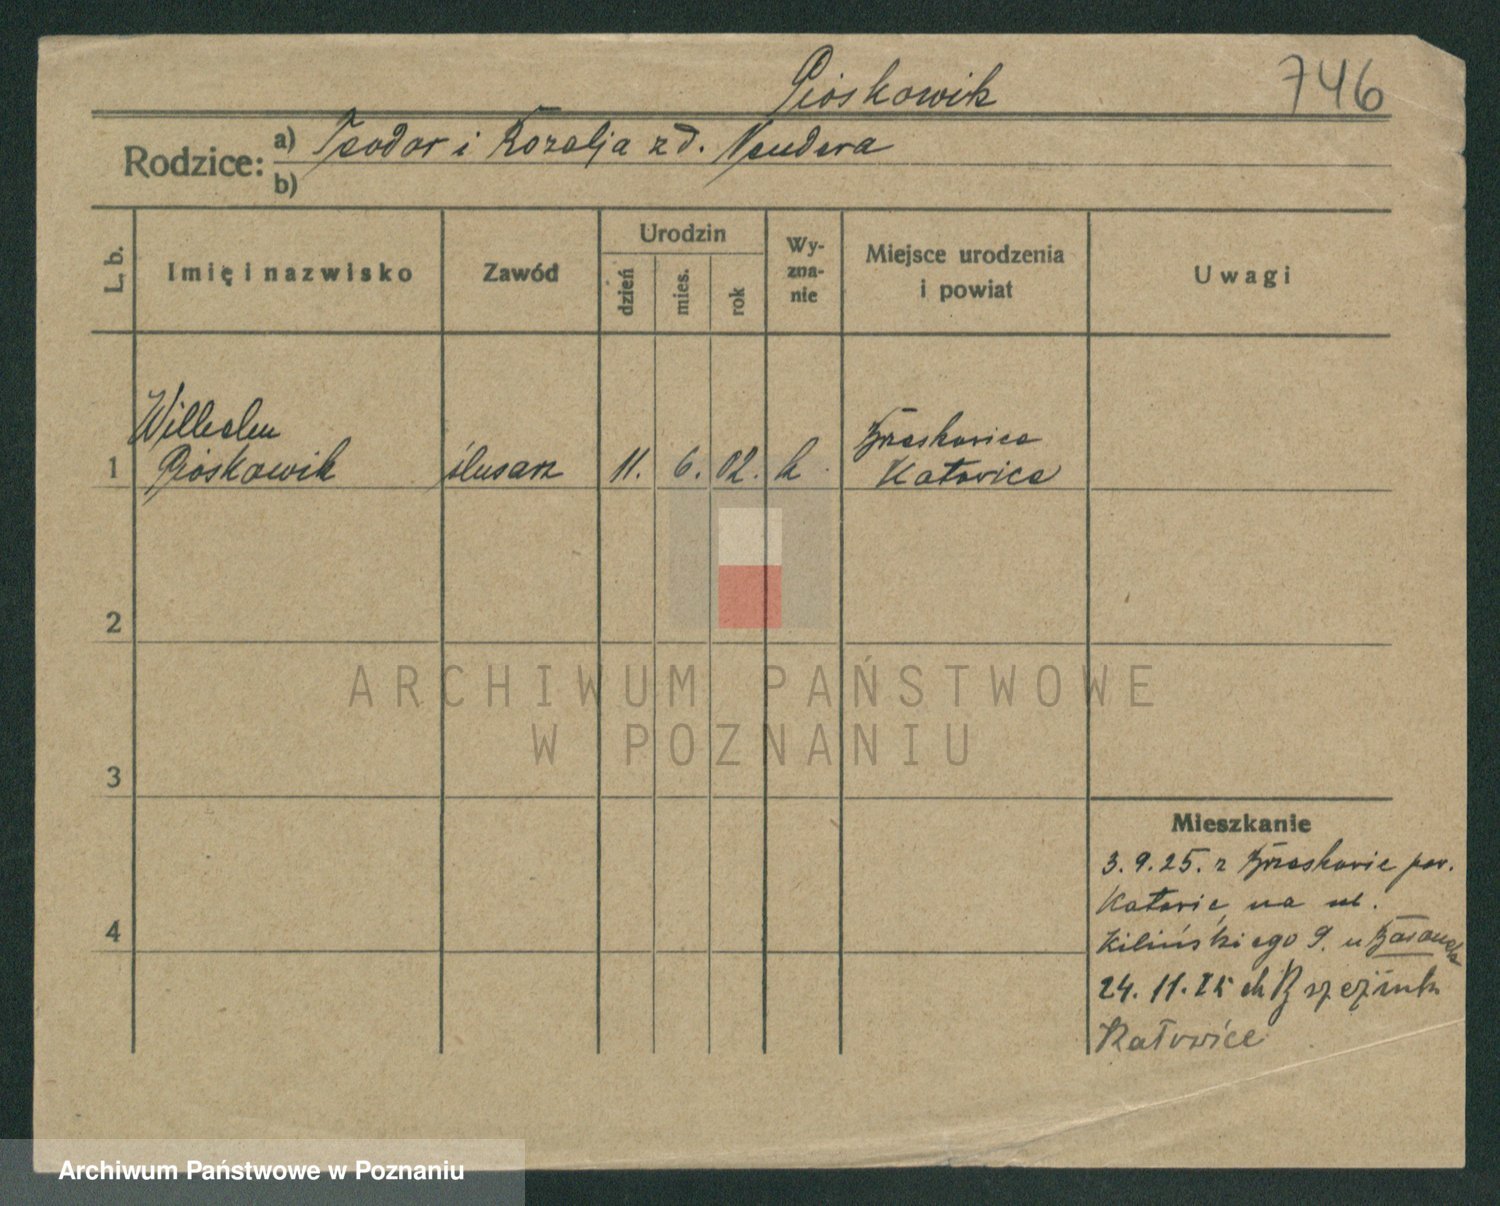 Pioskowik
746
Rodzice:
a) Teodor i Rozalja z d. Nendera
b)
L. b.
Imię i nazwisko
Zawód
Urodzin
dzień
mies.
rok
Wy-
zna-
nie
Miejsce urodzenia
i powiat
Uwagi
Wilhelm
1 Pioskowik ślusarz 11. 6. 02. k.
Brzeskovice
Katovice
2
3
4
ARCHIWUM PAŃSTWOWE
W POZNANIU
Mieszkanie
3.9.25. z Brzeskovic pow.
Katovic na ul.
Kilińskiego 9. u
24.11.25 do
Katowice
Archiwum Państwowe w Poznaniu